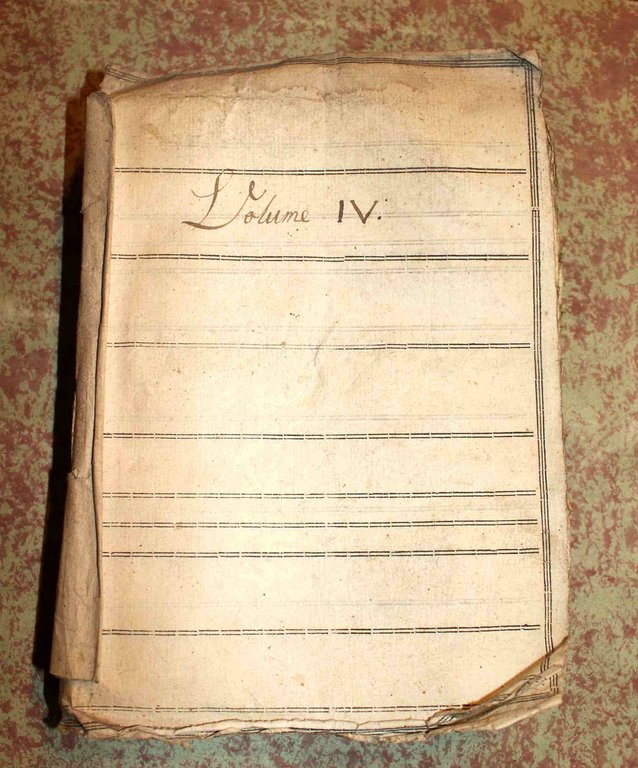 Volume IV.